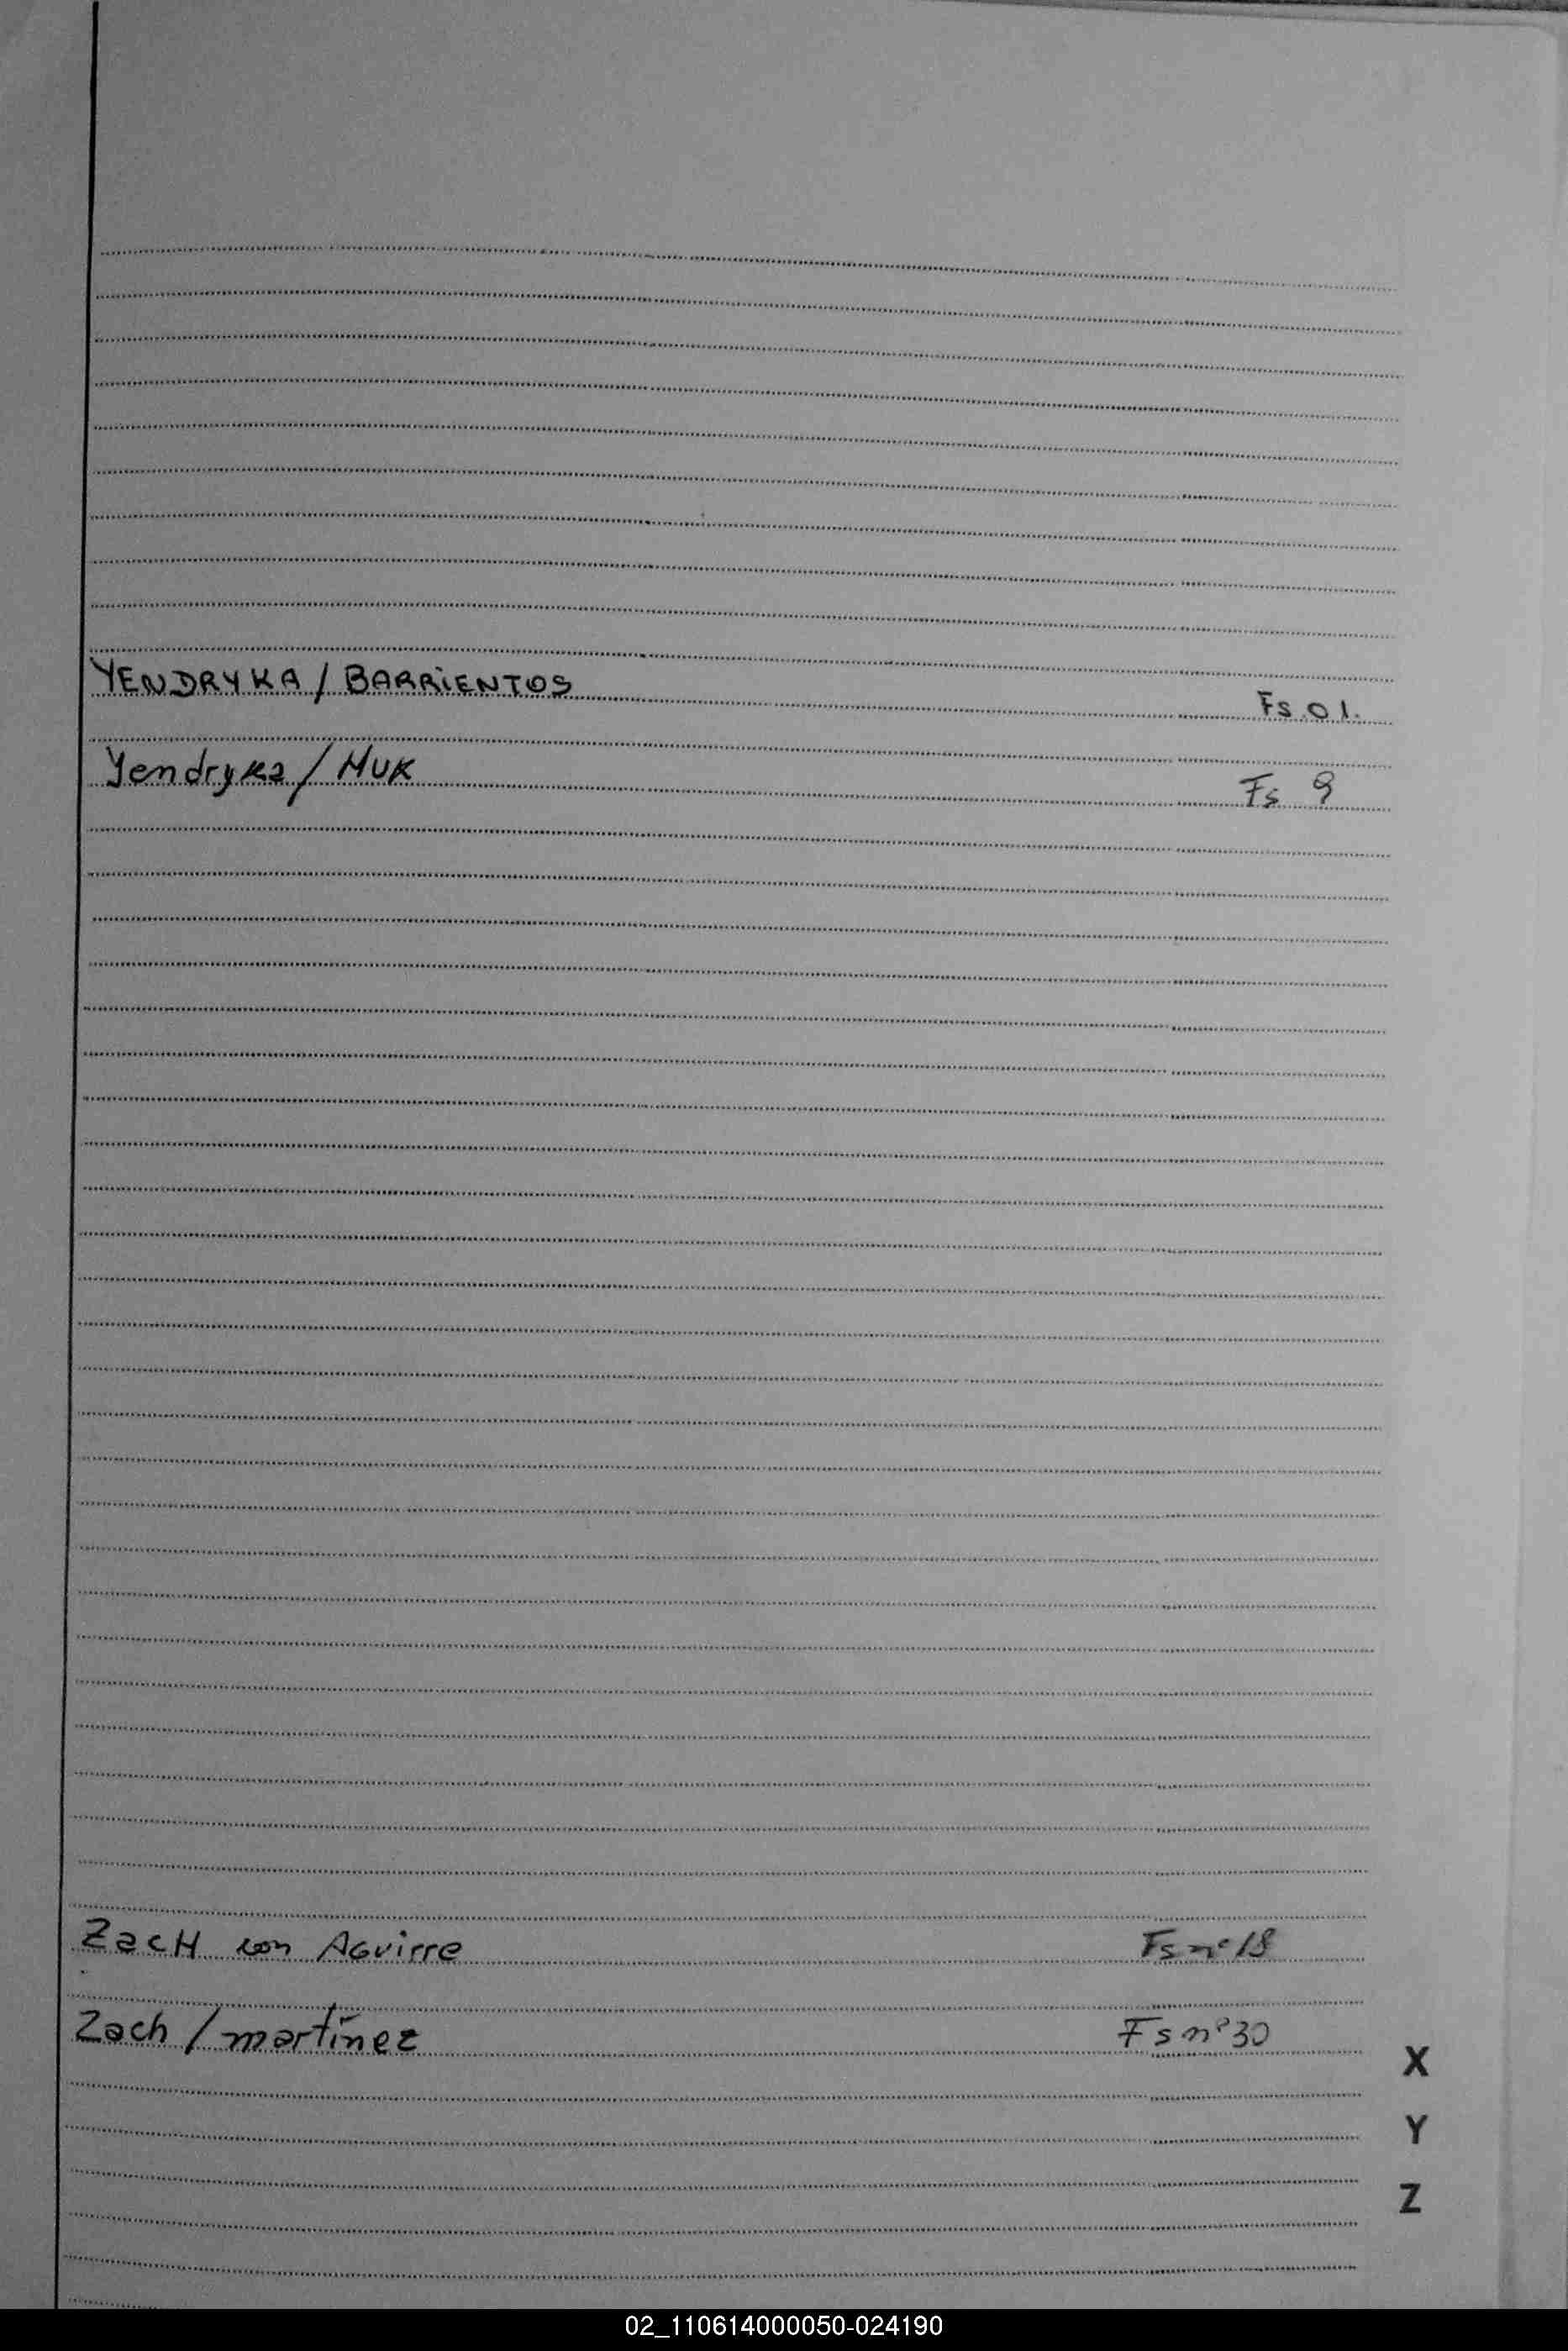 YENDRYKA / BARRIENTOS Fs 01.
Yendryka / HUK Fs 9
Zach con Aguirre Fs nº 18
Zach / martínez Fs nº 30
X
Y
Z
02_110614000050-024190